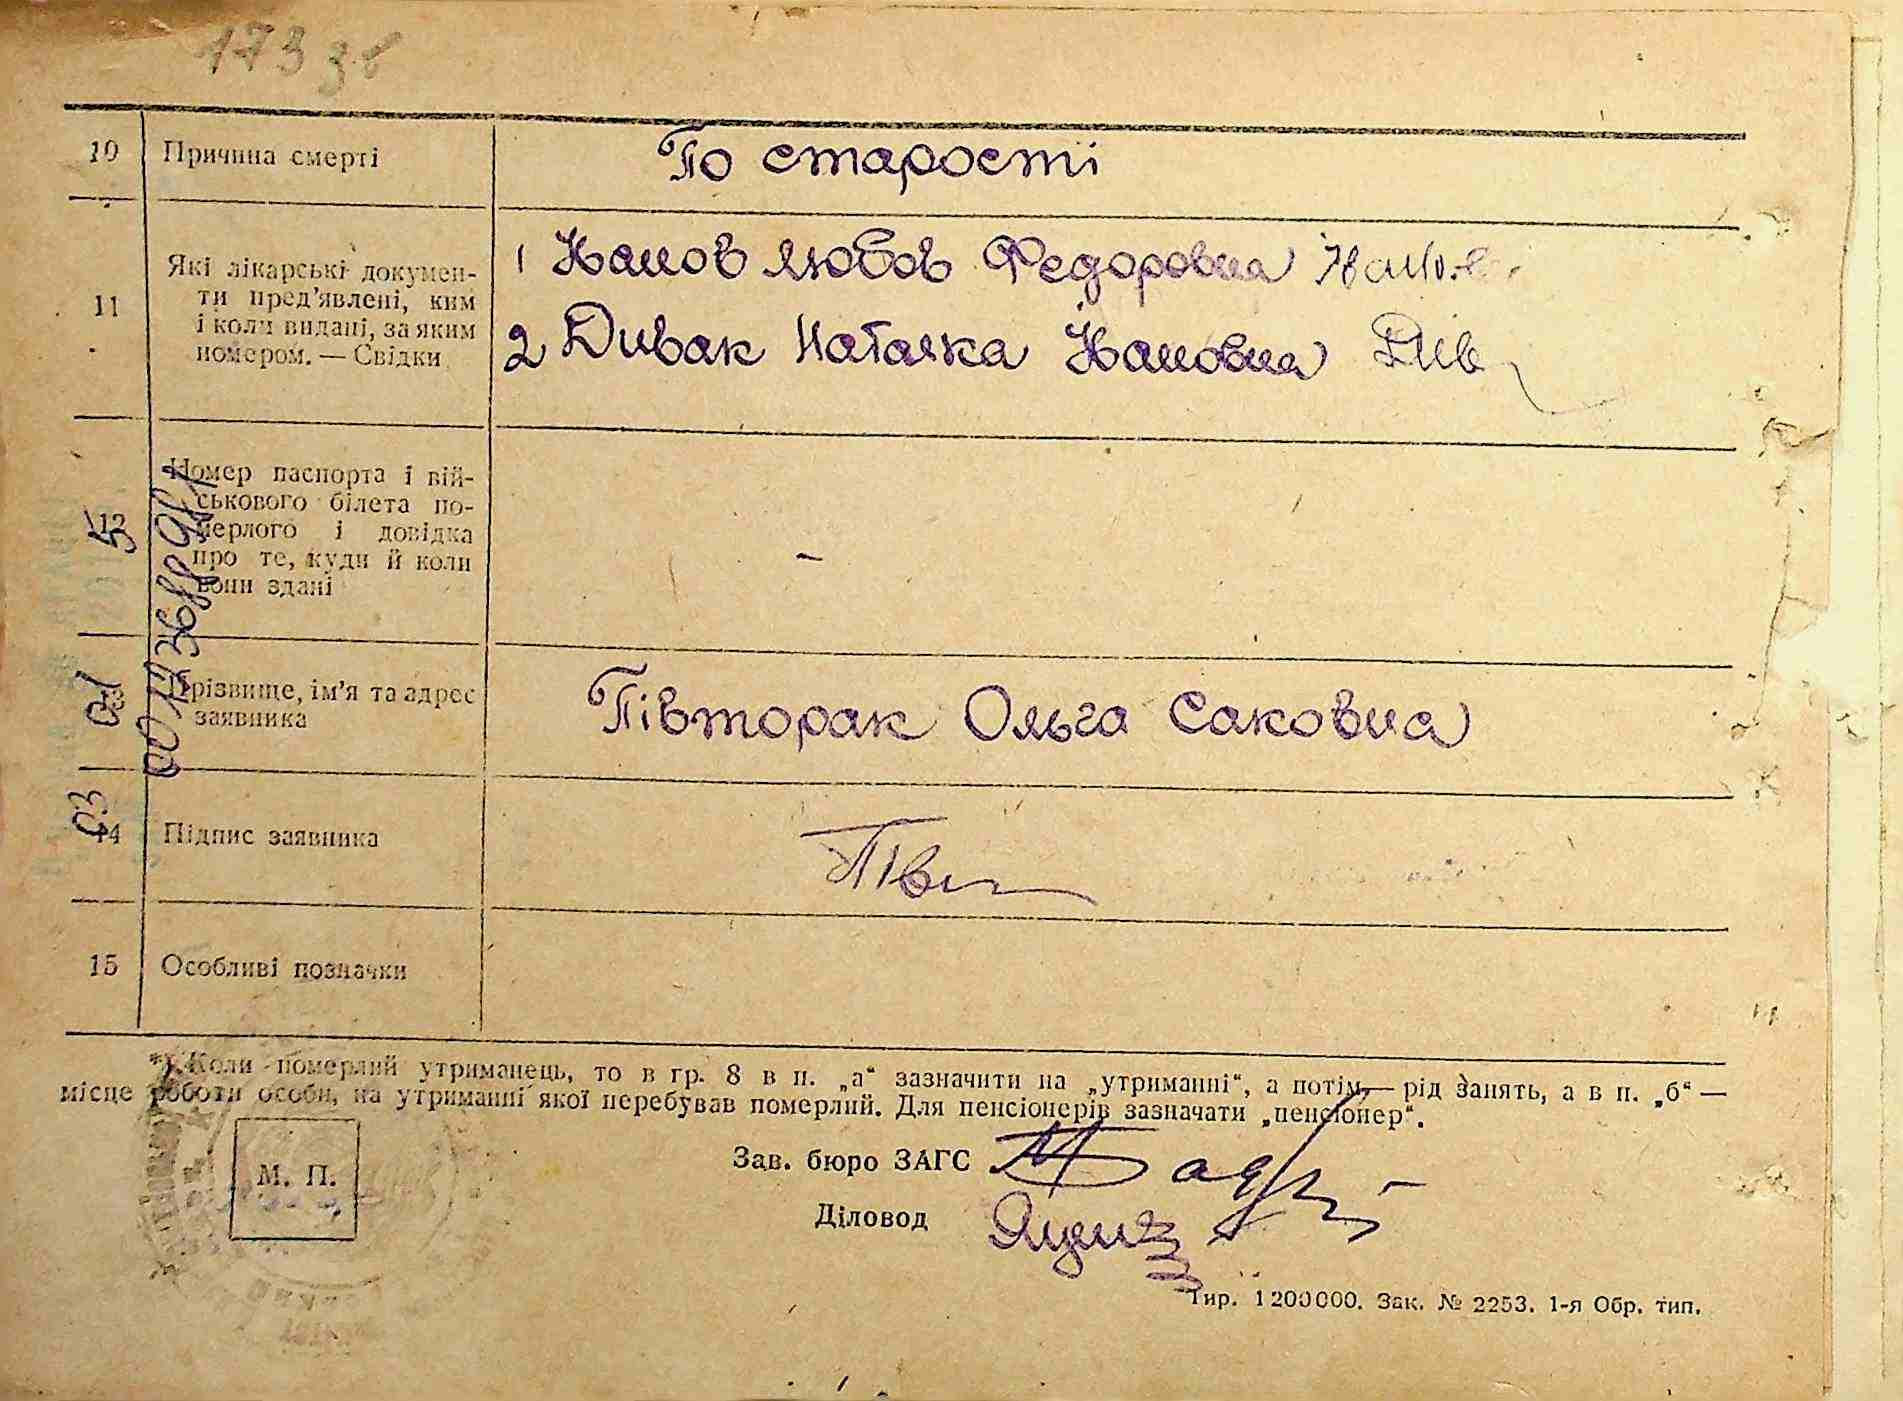 173 зв
10 Причина смерті По старості
11 Які лікарські докумен-
ти пред'явлені, ким
і коли видані, за яким
номером. — Свідки
1 Іванов Любов Федоровна Іванов
2 Дивак Наталка Івановна Див
12 Номер паспорта і вій-
ськового білета по-
мерлого і довідка
про те, куди й коли
вони здані
-
13 Прізвище, ім'я та адрес
заявника
Півторак Ольга Саковна
14 Підпис заявника Пів
15 Особливі позначки
*) Коли померлий утриманець, то в гр. 8 в п. „а“ зазначити на „утриманні“, а потім,— рід занять, а в п. „б“ —
місце роботи особи, на утриманні якої перебував померлий. Для пенсіонерів зазначати „пенсіонер“.
М. П.
Зав. бюро ЗАГС
Діловод
Тир. 1200000. Зак. № 2253. 1-я Обр. тип.